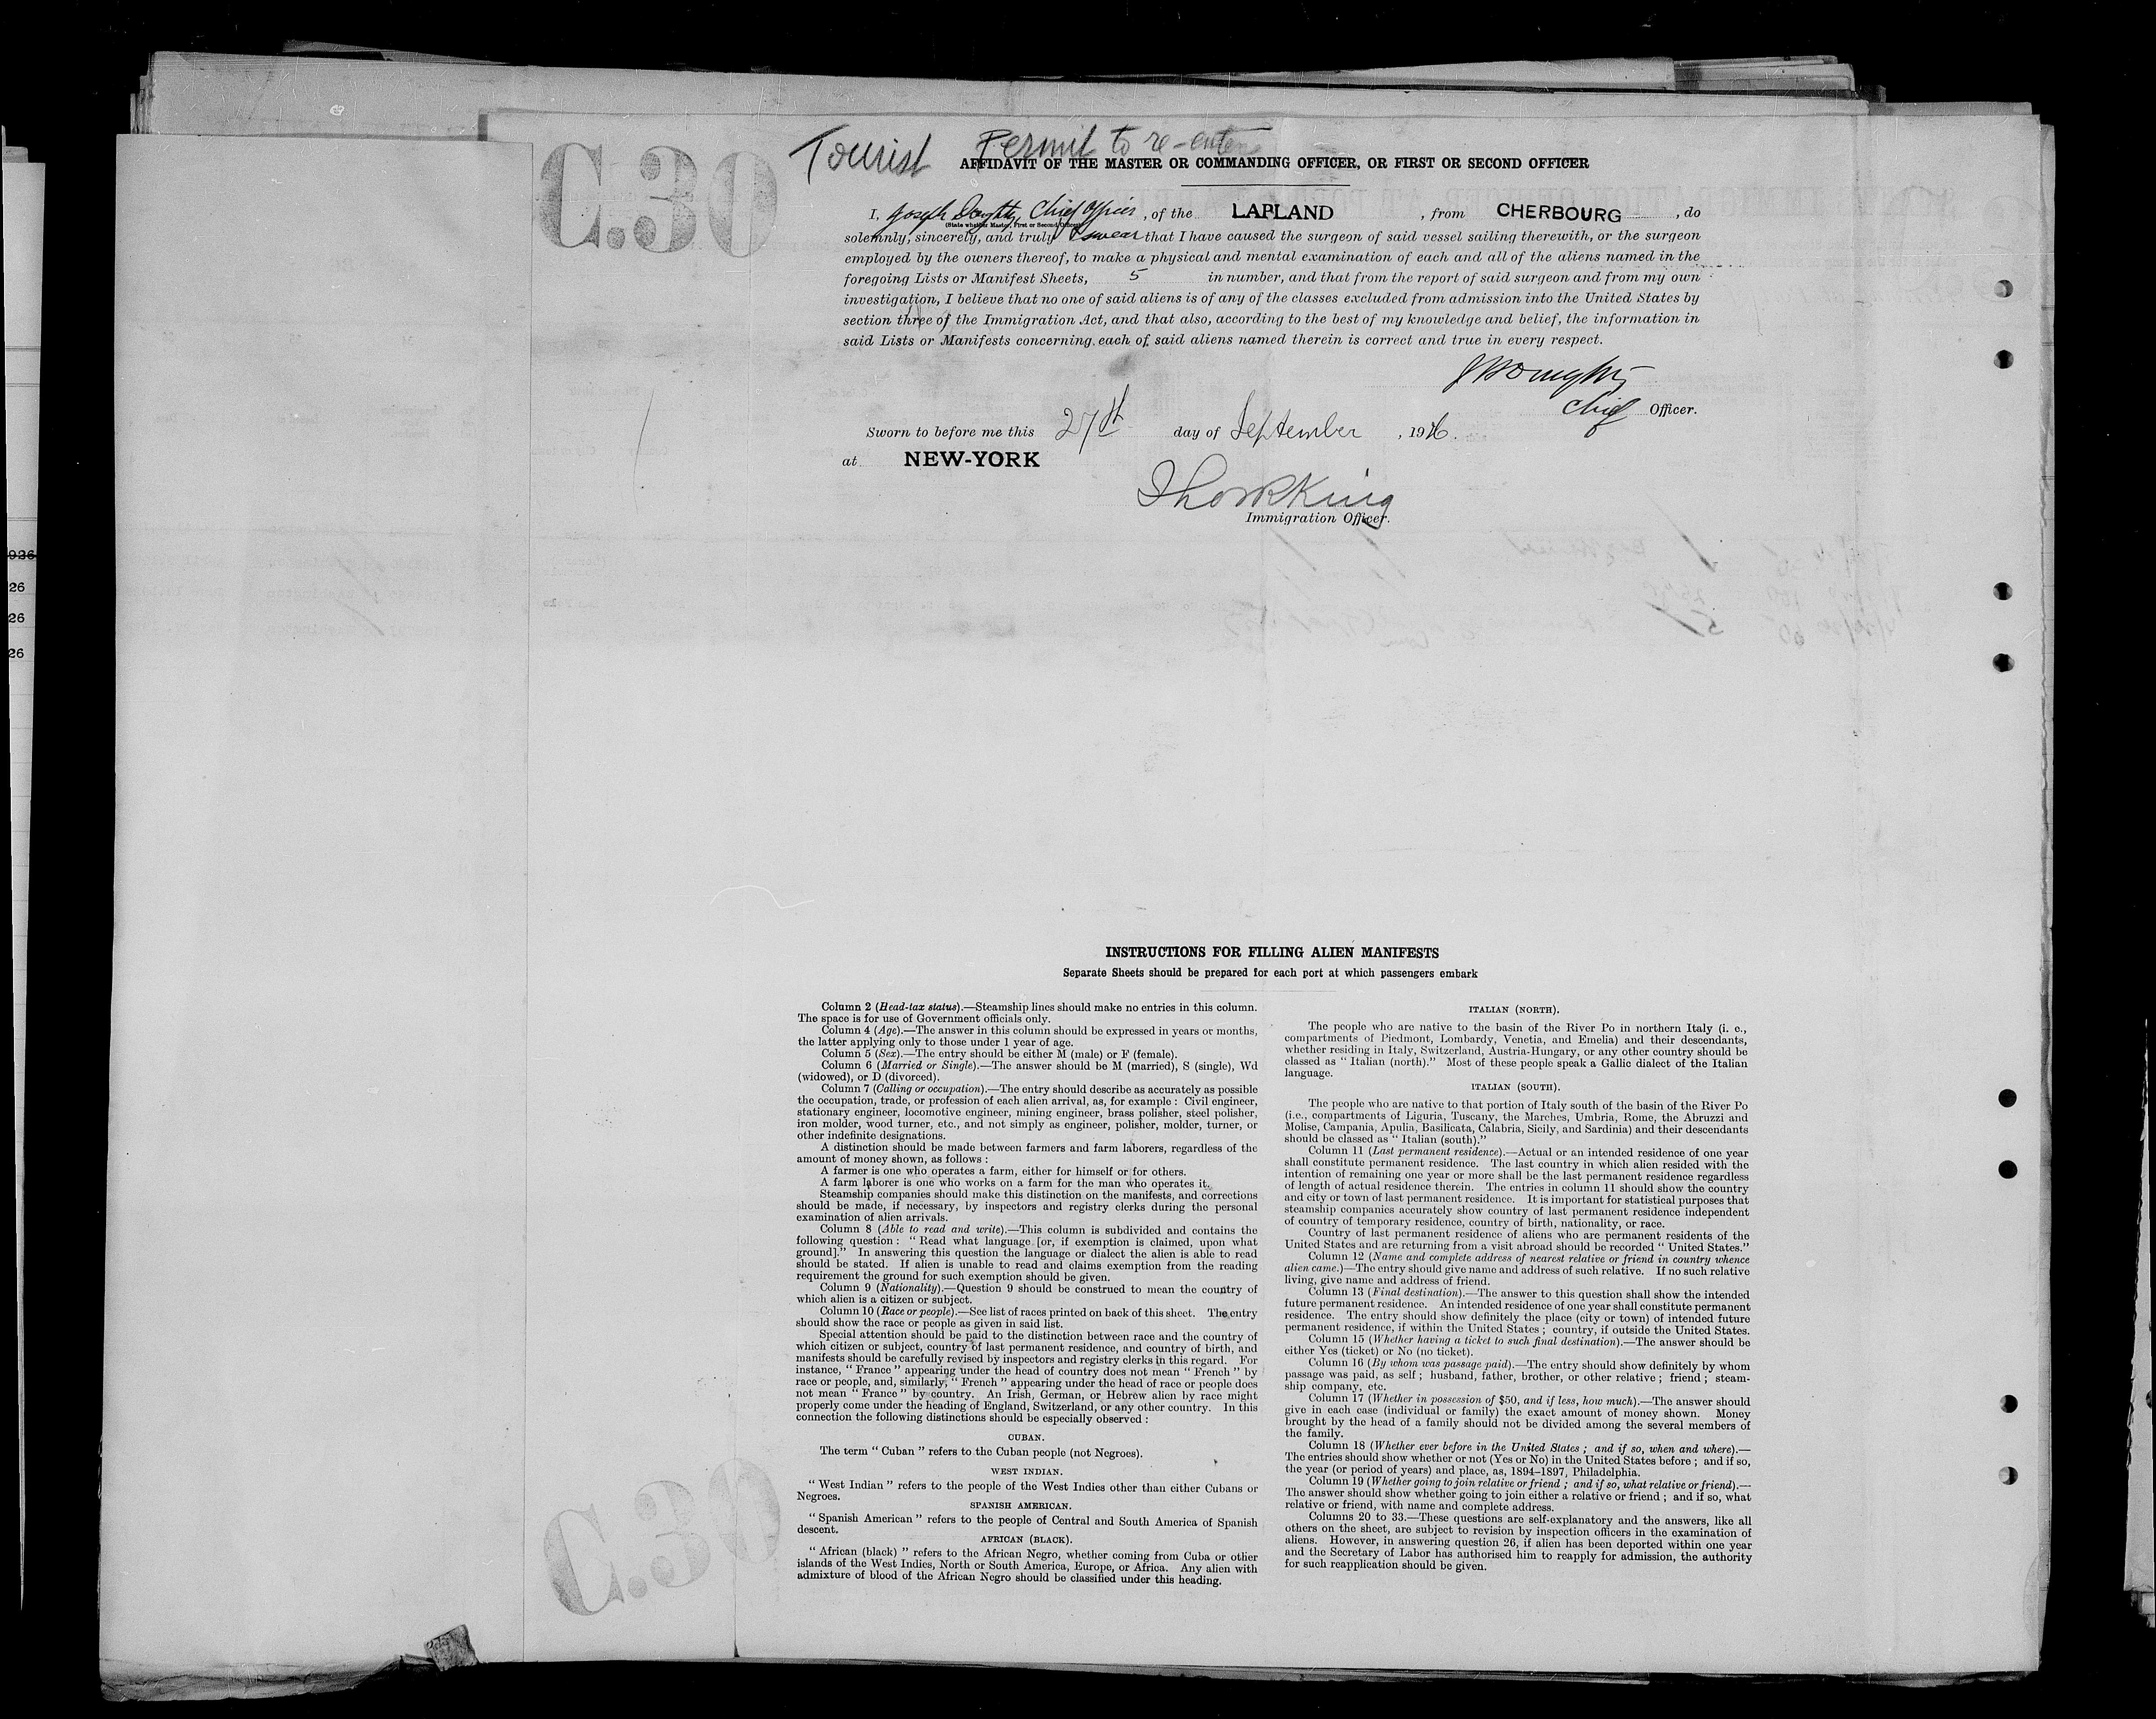 C.30
Tourist Permit to re-enter
AFFIDAVIT OF THE MASTER OR COMMANDING OFFICER, OR FIRST OR SECOND OFFICER
I, Joseph Doughty, Chief Officer, of the LAPLAND, from CHERBOURG, do
(State whether Master, First or Second Officer)
solemnly, sincerely, and truly swear that I have caused the surgeon of said vessel sailing therewith, or the surgeon
employed by the owners thereof, to make a physical and mental examination of each and all of the aliens named in the
foregoing Lists or Manifest Sheets, 5 in number, and that from the report of said surgeon and from my own
investigation, I believe that no one of said aliens is of any of the classes excluded from admission into the United States by
section three of the Immigration Act, and that also, according to the best of my knowledge and belief, the information in
said Lists or Manifests concerning each of said aliens named therein is correct and true in every respect.
Chief Officer.
Sworn to before me this 27th day of September, 1926.
at NEW-YORK
King
Immigration Officer.
926
26
26
26
INSTRUCTIONS FOR FILLING ALIEN MANIFESTS
Separate Sheets should be prepared for each port at which passengers embark
Column 2 (Head-tax status).—Steamship lines should make no entries in this column.
The space is for use of Government officials only.
Column 4 (Age).—The answer in this column should be expressed in years or months,
the latter applying only to those under 1 year of age.
Column 5 (Sex).—The entry should be either M (male) or F (female).
Column 6 (Married or Single).—The answer should be M (married), S (single), Wd
(widowed), or D (divorced).
Column 7 (Calling or occupation).—The entry should describe as accurately as possible
the occupation, trade, or profession of each alien arrival, as, for example : Civil engineer,
stationary engineer, locomotive engineer, mining engineer, brass polisher, steel polisher,
iron molder, wood turner, etc., and not simply as engineer, polisher, molder, turner, or
other indefinite designations.
A distinction should be made between farmers and farm laborers, regardless of the
amount of money shown, as follows :
A farmer is one who operates a farm, either for himself or for others.
A farm laborer is one who works on a farm for the man who operates it.
Steamship companies should make this distinction on the manifests, and corrections
should be made, if necessary, by inspectors and registry clerks during the personal
examination of alien arrivals.
Column 8 (Able to read and write).—This column is subdivided and contains the
following question : " Read what language [or, if exemption is claimed, upon what
ground]." In answering this question the language or dialect the alien is able to read
should be stated. If alien is unable to read and claims exemption from the reading
requirement the ground for such exemption should be given.
Column 9 (Nationality).—Question 9 should be construed to mean the country of
which alien is a citizen or subject.
Column 10 (Race or people).—See list of races printed on back of this sheet. The entry
should show the race or people as given in said list.
Special attention should be paid to the distinction between race and the country of
which citizen or subject, country of last permanent residence, and country of birth, and
manifests should be carefully revised by inspectors and registry clerks in this regard. For
instance, " France " appearing under the head of country does not mean " French " by
race or people, and, similarly, " French " appearing under the head of race or people does
not mean " France " by country. An Irish, German, or Hebrew alien by race might
properly come under the heading of England, Switzerland, or any other country. In this
connection the following distinctions should be especially observed :
CUBAN.
The term " Cuban " refers to the Cuban people (not Negroes).
WEST INDIAN.
" West Indian " refers to the people of the West Indies other than either Cubans or
Negroes.
SPANISH AMERICAN.
" Spanish American " refers to the people of Central and South America of Spanish
descent.
AFRICAN (BLACK).
" African (black) " refers to the African Negro, whether coming from Cuba or other
islands of the West Indies, North or South America, Europe, or Africa. Any alien with
admixture of blood of the African Negro should be classified under this heading.
ITALIAN (NORTH).
The people who are native to the basin of the River Po in northern Italy (i. e.,
compartments of Piedmont, Lombardy, Venetia, and Emelia) and their descendants,
whether residing in Italy, Switzerland, Austria-Hungary, or any other country should be
classed as " Italian (north)." Most of these people speak a Gallic dialect of the Italian
language.
ITALIAN (SOUTH).
The people who are native to that portion of Italy south of the basin of the River Po
(i.e., compartments of Liguria, Tuscany, the Marches, Umbria, Rome, the Abruzzi and
Molise, Campania, Apulia, Basilicata, Calabria, Sicily, and Sardinia) and their descendants
should be classed as " Italian (south)."
Column 11 (Last permanent residence).—Actual or an intended residence of one year
shall constitute permanent residence. The last country in which alien resided with the
intention of remaining one year or more shall be the last permanent residence regardless
of length of actual residence therein. The entries in column 11 should show the country
and city or town of last permanent residence. It is important for statistical purposes that
steamship companies accurately show country of last permanent residence independent
of country of temporary residence, country of birth, nationality, or race.
Country of last permanent residence of aliens who are permanent residents of the
United States and are returning from a visit abroad should be recorded " United States."
Column 12 (Name and complete address of nearest relative or friend in country whence
alien came.)—The entry should give name and address of such relative. If no such relative
living, give name and address of friend.
Column 13 (Final destination).—The answer to this question shall show the intended
future permanent residence. An intended residence of one year shall constitute permanent
residence. The entry should show definitely the place (city or town) of intended future
permanent residence, if within the United States ; country, if outside the United States.
Column 15 (Whether having a ticket to such final destination).—The answer should be
either Yes (ticket) or No (no ticket).
Column 16 (By whom was passage paid).—The entry should show definitely by whom
passage was paid, as self ; husband, father, brother, or other relative ; friend ; steam-
ship company, etc.
Column 17 (Whether in possession of $50, and if less, how much).—The answer should
give in each case (individual or family) the exact amount of money shown. Money
brought by the head of a family should not be divided among the several members of
the family.
Column 18 (Whether ever before in the United States ; and if so, when and where).—
The entries should show whether or not (Yes or No) in the United States before ; and if so,
the year (or period of years) and place, as, 1894–1897, Philadelphia.
Column 19 (Whether going to join relative or friend ; and if so, what relative or friend).—
The answer should show whether going to join either a relative or friend ; and if so, what
relative or friend, with name and complete address.
Columns 20 to 33.—These questions are self-explanatory and the answers, like all
others on the sheet, are subject to revision by inspection officers in the examination of
aliens. However, in answering question 26, if alien has been deported within one year
and the Secretary of Labor has authorised him to reapply for admission, the authority
for such reapplication should be given.
C.30